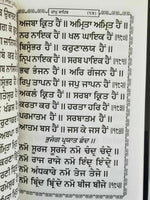 ਅਜਬਾ ਕ੍ਰਿਤ ਹੈਂ ॥ ਅਮ੍ਰਿਤਾ ਮ੍ਰਿਤ ਹੈਂ ॥
ਨਰ ਨਾਇਕ ਹੈਂ ॥ ਖਲ ਘਾਇਕ ਹੈਂ ॥
ਬਿਸ੍ਵੰਭਰ ਹੈਂ ॥ ਕਰੁਣਾਲਯ ਹੈਂ ॥
ਨ੍ਰਿਪ ਨਾਇਕ ਹੈਂ ॥ ਸਰਬ ਪਾਇਕ ਹੈਂ ॥
ਭਵ ਭੰਜਨ ਹੈਂ ॥ ਅਰਿ ਗੰਜਨ ਹੈਂ ॥
ਰਿਪੁ ਤਾਪਨ ਹੈਂ ॥ ਜਪੁ ਜਾਪਨ ਹੈਂ ॥
ਅਕਲੰ ਕ੍ਰਿਤ ਹੈਂ ॥ ਸਰਬਾ ਕ੍ਰਿਤ ਹੈਂ ॥
ਕਰਤਾ ਕਰ ਹੈਂ ॥ ਹਰਤਾ ਹਰਿ ਹੈਂ ॥
ਪਰਮਾਤਮ ਹੈਂ ॥ ਸਰਬਾਤਮ ਹੈਂ ॥
ਆਤਮ ਬਸ ਹੈਂ ॥ ਜਸ ਕੇ ਜਸ ਹੈਂ ॥
ਭੁਜੰਗ ਪ੍ਰਯਾਤ ਛੰਦ ॥
ਨਮੋ ਸੂਰਜ ਸੂਰਜੇ ਨਮੋ ਚੰਦ੍ਰ ਚੰਦ੍ਰੇ ॥
ਨਮੋ ਰਾਜ ਰਾਜੇ ਨਮੋ ਇੰਦ੍ਰ ਇੰਦ੍ਰੇ ॥
ਨਮੋ ਅੰਧਕਾਰੇ ਨਮੋ ਤੇਜ ਤੇਜੇ ॥
ਨਮੋ ਬ੍ਰਿੰਦ ਬ੍ਰਿੰਦੇ ਨਮੋ ਬੀਜ ਬੀਜੇ ॥